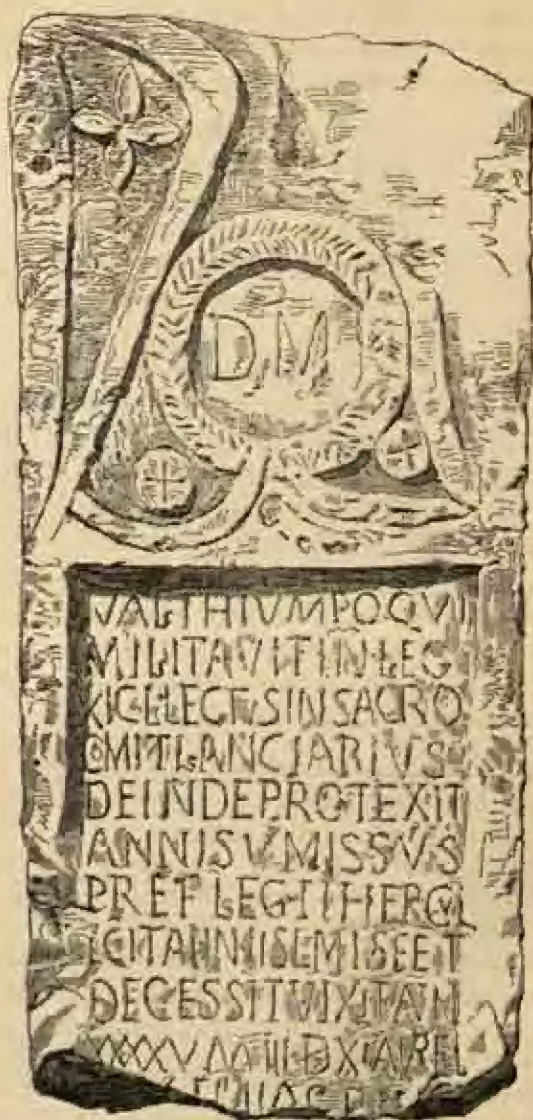 D M
VAL THIVMPO QVI
MILITAVIT IN LEG
XI CL LECTVS IN SACRO
COMIT LANCIARIVS
DEINDE PROTEXIT
ANNIS V MISSVS
PREF LEG II HERCVL
EGIT ANN II SEMISE ET
DECESSIT VIXIT ANN
XXXXV M III D XI AVREL